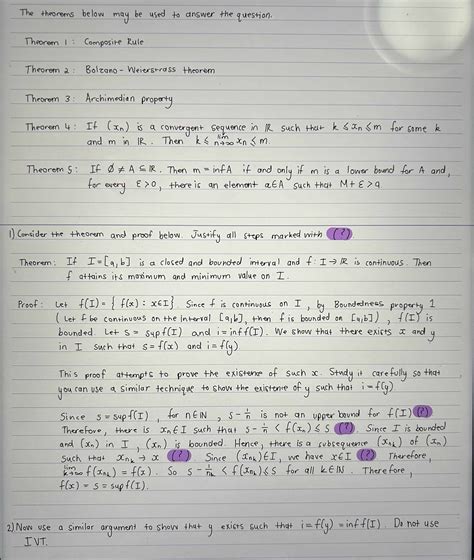 The theorems below may be used to answer the question.
Theorem 1 : Composite Rule
Theorem 2 : Bolzano-Weierstrass theorem
Theorem 3 : Archimedian property
Theorem 4 : If (xₙ) is a convergent sequence in ℝ such that k ≤ xₙ ≤ m for some k
and m in ℝ. Then k ≤ lim n→∞ xₙ ≤ m.
Theorem 5 : If ∅ ≠ A ⊆ ℝ. Then m = inf A if and only if m is a lower bound for A and,
for every ε > 0, there is an element a ∈ A such that M + ε > a
1) Consider the theorem and proof below. Justify all steps marked with (?)
Theorem : If I = [a, b] is a closed and bounded interval and f : I → ℝ is continuous. Then
f attains its maximum and minimum value on I.
Proof : Let f(I) = { f(x) : x ∈ I}. Since f is continuous on I, by Boundedness property 1
( Let f be continuous on the interval [a,b], then f is bounded on [a,b]), f(I) is
bounded. Let s = sup f(I) and i = inf f(I). We show that there exists x and y
in I such that s = f(x) and i = f(y)
This proof attempts to prove the existence of such x. Study it carefully so that
you can use a similar technique to show the existence of y such that i = f(y)
Since s = sup f(I), for n ∈ ℕ, s - 1/n is not an upper bound for f(I) (?)
Therefore, there is xₙ ∈ I such that s - 1/n < f(xₙ) ≤ s (?) Since I is bounded
and (xₙ) in I, (xₙ) is bounded. Hence, there is a subsequence (xₙₖ) of (xₙ)
such that xₙₖ → x (?) Since (xₙₖ) ∈ I, we have x ∈ I (?) Therefore,
lim k→∞ f(xₙₖ) = f(x). So s - 1/nₖ < f(xₙₖ) ≤ s for all k ∈ ℕ. Therefore,
f(x) = s = sup f(I).
2) Now use a similar argument to show that y exists such that i = f(y) = inf f(I). Do not use
IVT.